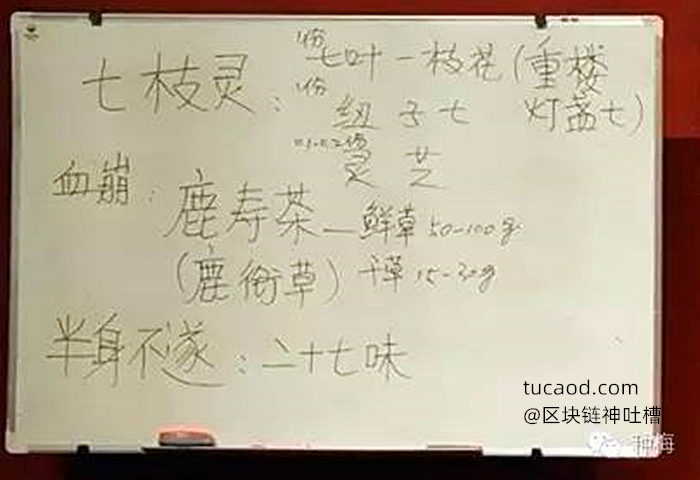 七枝灵：
1份 七叶一枝花（重楼
灯盏七）
1份 纽子七
0.1-0.2份 灵芝
血崩：鹿寿茶—鲜草 50-100g
（鹿衔草）干草 15-30g
半身不遂：二十七味
tucaod.com
@区块链神吐槽
种海